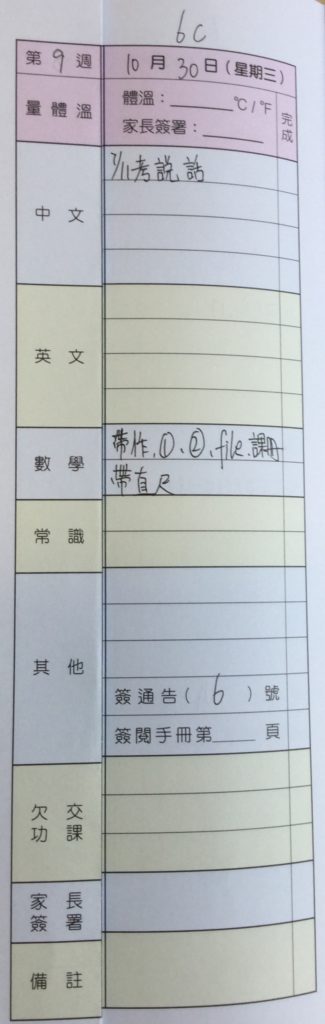 6C
第 9 週 10 月 30 日(星期三)
量體溫 體溫:______℃/℉ 完成
家長簽署:______
中文 7/11考說話
英文
數學 帶作,①、②、file、課冊
帶直尺
常識
其他
簽通告( 6 )號
簽閱手冊第____頁
欠交
功課
家長
簽署
備註